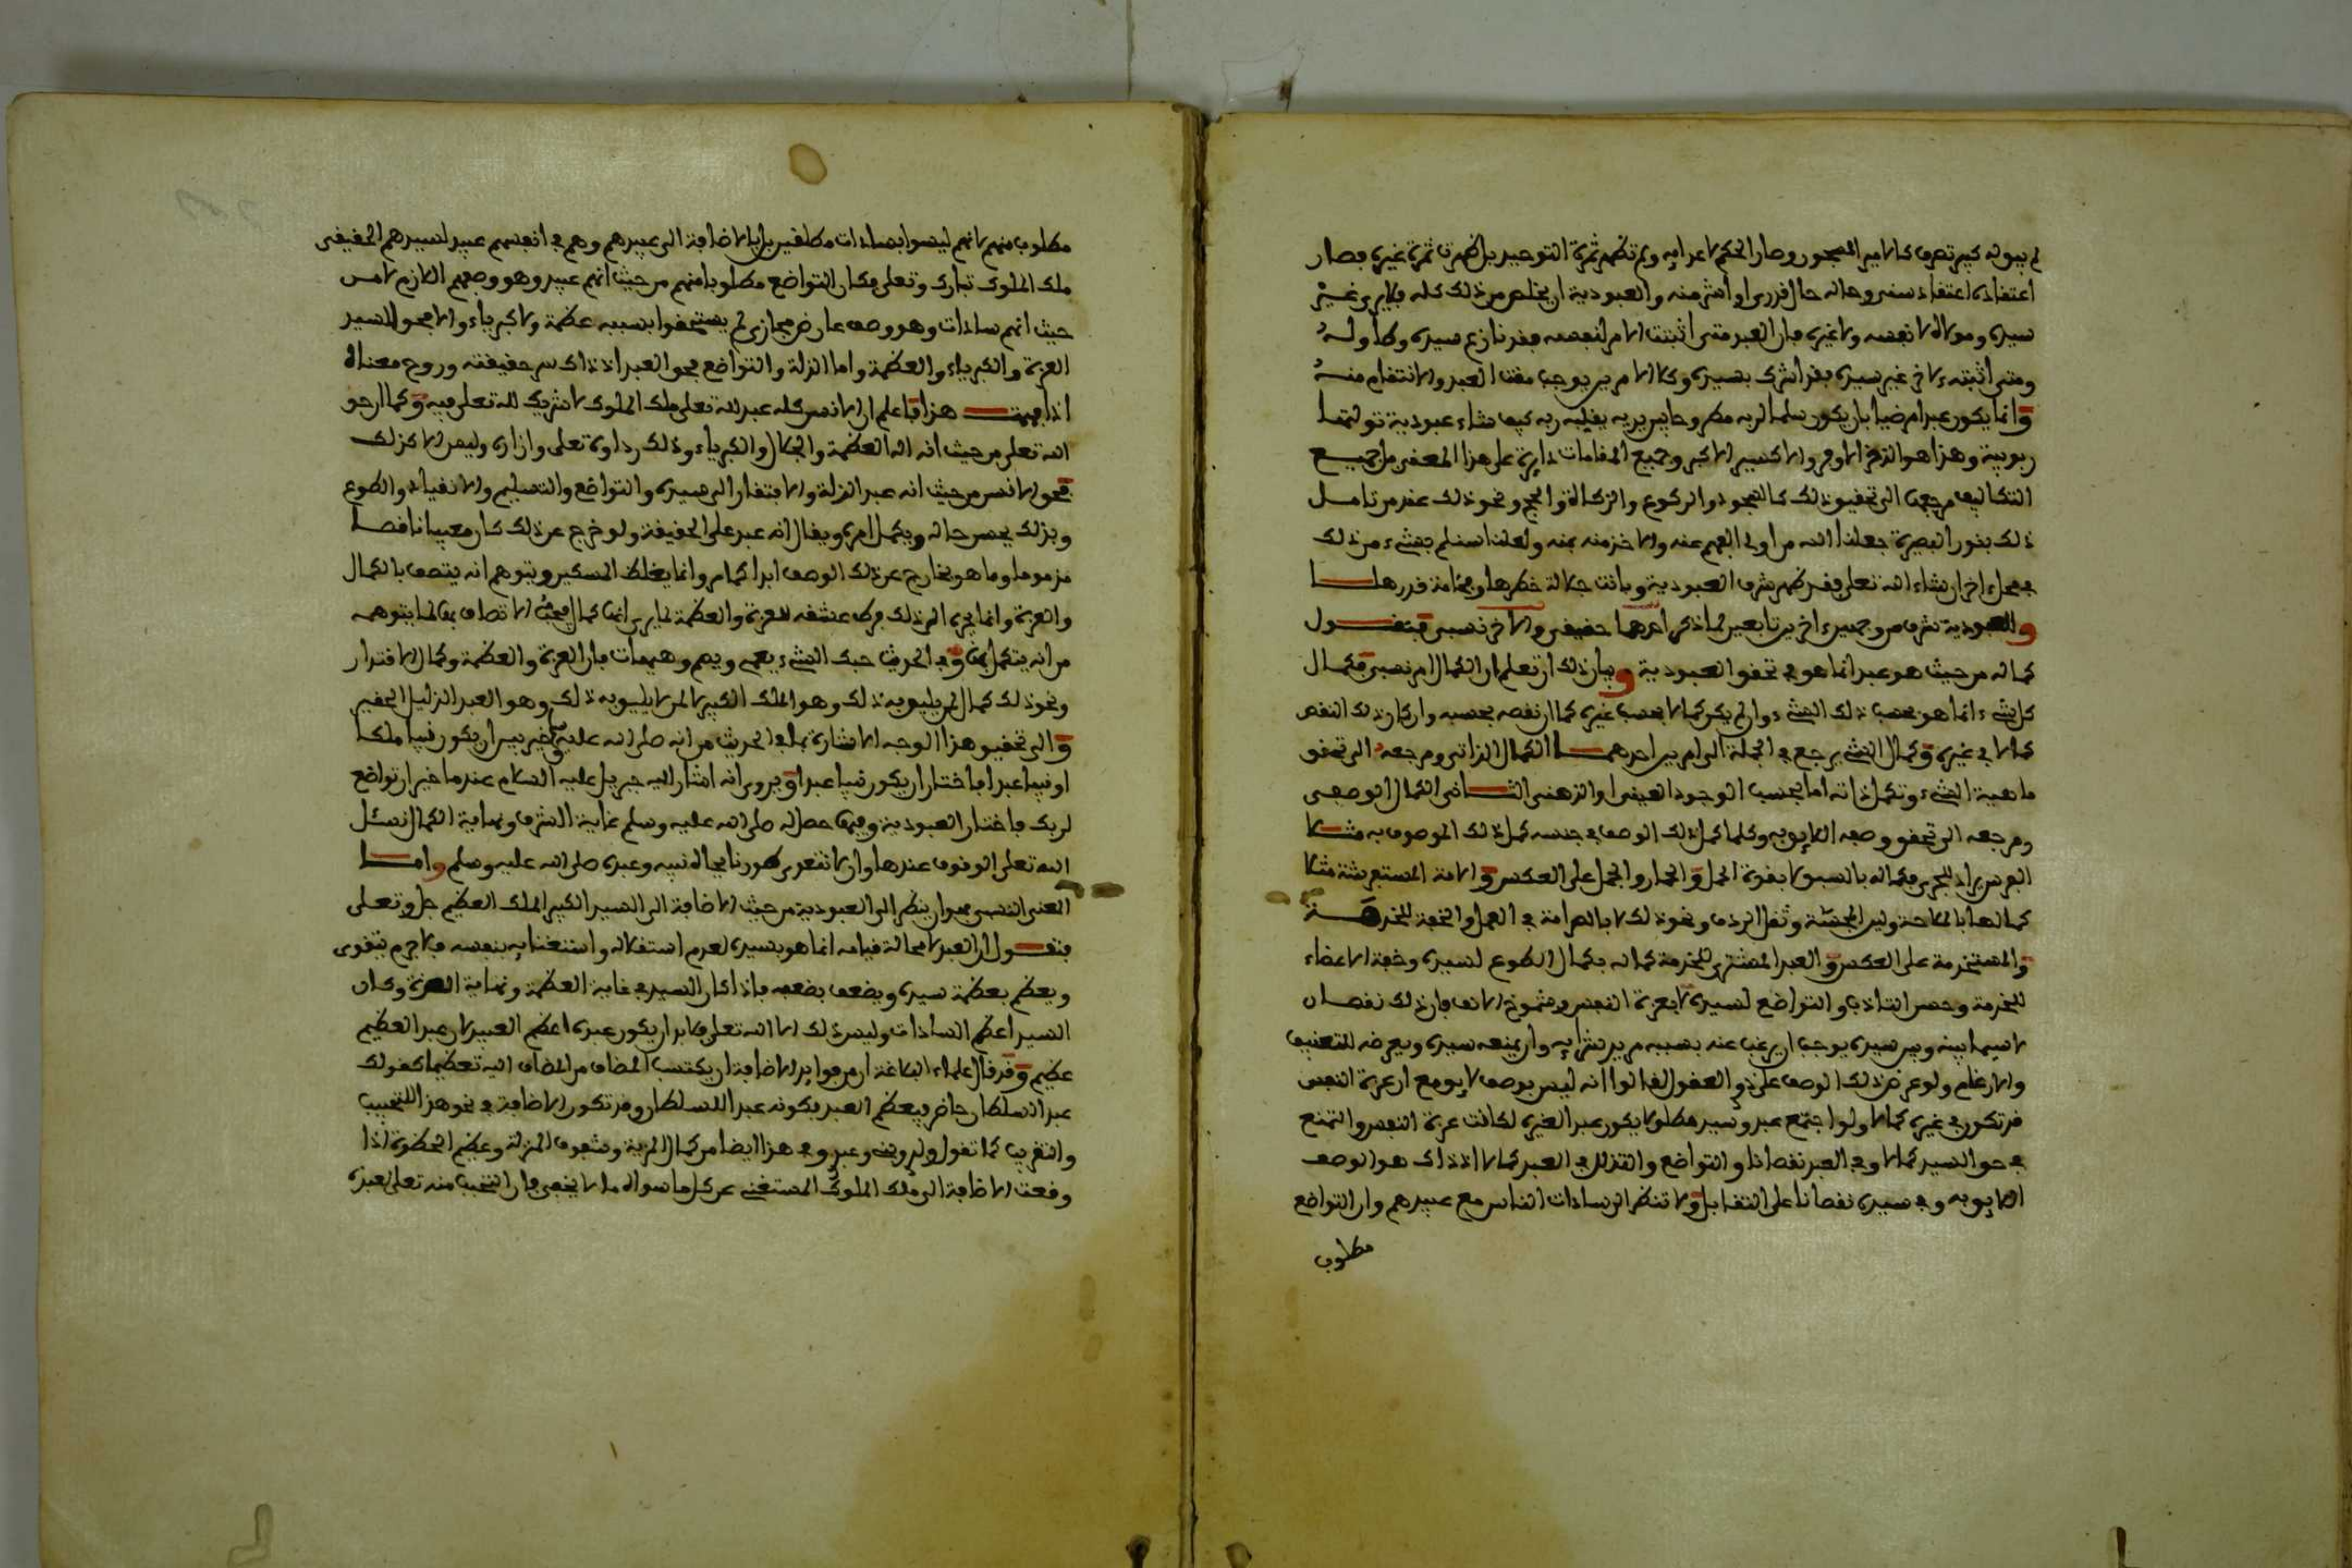 لم يبق له كبير تصرف كالامير المحجور وصار الحكم لاعدايه ولم تظهر ثمرة التوحيد بل ظهرت ثمرة غيره فصار
اعتقاده اعتقاد سني وحاله حال قدري او اشر منه والعبودية ان يخلص من ذلك كله فلا يرى غير
سيده ومولاه لا نفسه ولا غيره فان العبد متى اثبت الامر لنفسه فقد نازع سيده وطاوله
ومتى اثبته لاخر غير سيده فقد اشرك بسيده وكلا الامرين يوجب مقت العبد والانتقام منه
وانما يكون عبدا مرضيا بان يكون سلما لربه مطروحا بين يديه يقلبه ربه كيف شاء عبودية تولتها
ربوبية وهذا هو الذخر الاوفر والاكسير الاكبر وجميع المقامات دايرة على هذا المعنى بل جميع
التكاليف مرجعها الى تحقيق ذلك كالسجود والركوع والزكاة والحج ونحو ذلك عند من تامل
ذلك بنور البصيرة جعلنا الله من اولي الفهم عنه والاخذ منه بمنه ولعلنا سنلم بشيء من ذلك
في محل اخر ان شاء الله تعلى فقد ظهر شرف العبودية وبانت جلالة خطرها وفخامة قدرها
وللعبودية شرف من وجهين اخرين تابعين لما ذكر احدهما حقيقي والاخر نسبي فنقول
كماله من حيث هو عبد انما هو في تحقق العبودية وبيان ذلك ان تعلم ان الكمال امر نسبي فكمال
كل شيء انما هو بحسب ذلك الشيء وان لم يكن كمالا بحسب غيره كما ان نقصه بحسبه وان كان ذلك النقص
كمالا في غيره وكمال الشيء يرجع في الجملة الى امرين احدهما الكمال الذاتي ومرجعه الى تحقق
ماهية الشيء وتكمل ذاته اما بحسب الوجود العيني او الذهني الثاني الكمال الوصفي
ومرجعه الى تحقق وصفه اللايق به وكلما كمل ذلك الوصف في جنسه كمل ذلك الموصوف به مثلا
الفرس يراد للجري فكماله بالسبق لا بقوة الحمل والحمار والجمل على العكس والامة المستفرشة مثلا
كمالها بالملاحة ولين المجسة وثقل الردف ونحو ذلك لا بالصرامة في العمل والخفة للخدمة
والمستخدمة على العكس والعبد المشترى للخدمة كماله بكمال الطوع لسيده وخفة الاعضاء
للخدمة وحسن التادب والتواضع لسيده لا بعزة النفس وشموخ الانف فان ذلك نقصان
لا سيما بينه وبين سيده يوجب ان يرغب عنه بسببه مريد شرايه وان يمنعه سيده ويعرضه للتعنيف
والارغام ولو عرض ذلك الوصف على ذوي العقول لقالوا انه ليس بوصف لايق مع ان عزة النفس
قد تكون في غيره كمالا ولو اجتمع عبد وسيد مطلوب لا يكون عبد الغيره لكانت عزة النفس والتمنع
في حق السيد كمالا وفي العبد نقصانا والتواضع والتذلل في العبد كمالا اذ ذاك هو الوصف
اللايق به وفي سيده نقصانا على التقابل ولا تنظر الى سادات الناس مع عبيدهم وان التواضع
مطلوب
مطلوب منهم لانهم ليسوا بسادات مطلقين بل بالاضافة الى عبيدهم وهم في انفسهم عبيد لسيدهم الحقيقي
ملك الملوك تبارك وتعلى فكان التواضع مطلوبا منهم من حيث انهم عبيد وهو وصفهم اللازم لا من
حيث انهم سادات وهو وصف عارض مجازي لم يستحقوا بسببه عظمة ولا كبرياء والا فحق السيد
العزة والكبرياء والعظمة واما الذلة والتواضع فحق العبد اذ ذاك سر حقيقته وروح معناه
اذا فهمت هذا فاعلم ان الانس كله عبد لله تعلى ملك الملوك لا شريك لله تعلى فيه وكما ان حق
الله تعلى من حيث انه اله العظمة والجلال والكبرياء وذلك رداوه تعلى وازاره وليس الا كذلك
فحق الانس من حيث انه عبد الذلة والافتقار الى سيده والتواضع والتسليم والانقياد والطوع
وبذلك يحسن حاله ويكمل امره ويقال انه عبد على الحقيقة ولو خرج عن ذلك كان معيبا ناقصا
مذموما وما هو بخارج عن ذلك الوصف ابدا كما مر وانما يغلط المسكين ويتوهم انه يتصف بالكمال
والعزة وانما يجره الى ذلك فرط عشقه للعزة والعظمة لما يرى انها كمال فحيث الا تصاف بها لما يتوهمه
من انه يتكمل بها وفي الحديث حبك الشيء يعمي ويصم وهيهات فان العزة والعظمة وكمال الاقتدار
ونحو ذلك كمال لمن يليق به ذلك وهو الملك الكبير لا لمن لا يليق به ذلك وهو العبد الذليل الحقير
والى تحقيق هذا الوجه الاشارة بما في الحديث من انه صلى الله عليه وسلم خير بين ان يكون نبيا ملكا
او نبيا عبدا فاختار ان يكون نبيا عبدا ويروى انه اشار اليه جبريل عليه السلام عندما خير ان تواضع
لربك فاختار العبودية وفيها حصل له صلى الله عليه وسلم غاية الشرف ونهاية الكمال نسئل
الله تعلى الوقوف عندها وان لا نتعدى طورنا بجاه نبيه وعبده صلى الله عليه وسلم واما
المعنى النسبي فهو ان ينظر الى العبودية من حيث الاضافة الى السيد الكبير الملك العظيم جل وتعلى
فنقول ان العبد لا محالة قيامه انما هو بسيده لعدم استقلاله واستغنايه بنفسه فلا جرم يتقوى
ويعظم بعظمة سيده ويضعف بضعفه فاذا كان السيد في غاية العظمة ونهاية العزة وكان
السيد اعظم السادات وليس ذلك الا الله تعلى فلا بد ان يكون عبده اعظم العبيد لان عبد العظيم
عظيم وقد قال علماء البلاغة ان من فوايد الاضافة ان يكتسب المضاف من المضاف اليه تعظيما كقولك
عبد السلطان حاضر فيعظم العبد بكونه عبدا للسلطان وقد تكون الاضافة في نحو هذا للتحبيب
والتقريب كما تقول ولدي وعبدي وفي هذا ايضا من كمال المزية وشفوف المنزلة وعظيم الحظوة اذا
وقعت الاضافة الى ملك الملوك المستغني عن كل ما سواه ما لا يخفى فان التحبب منه تعلى لعبده